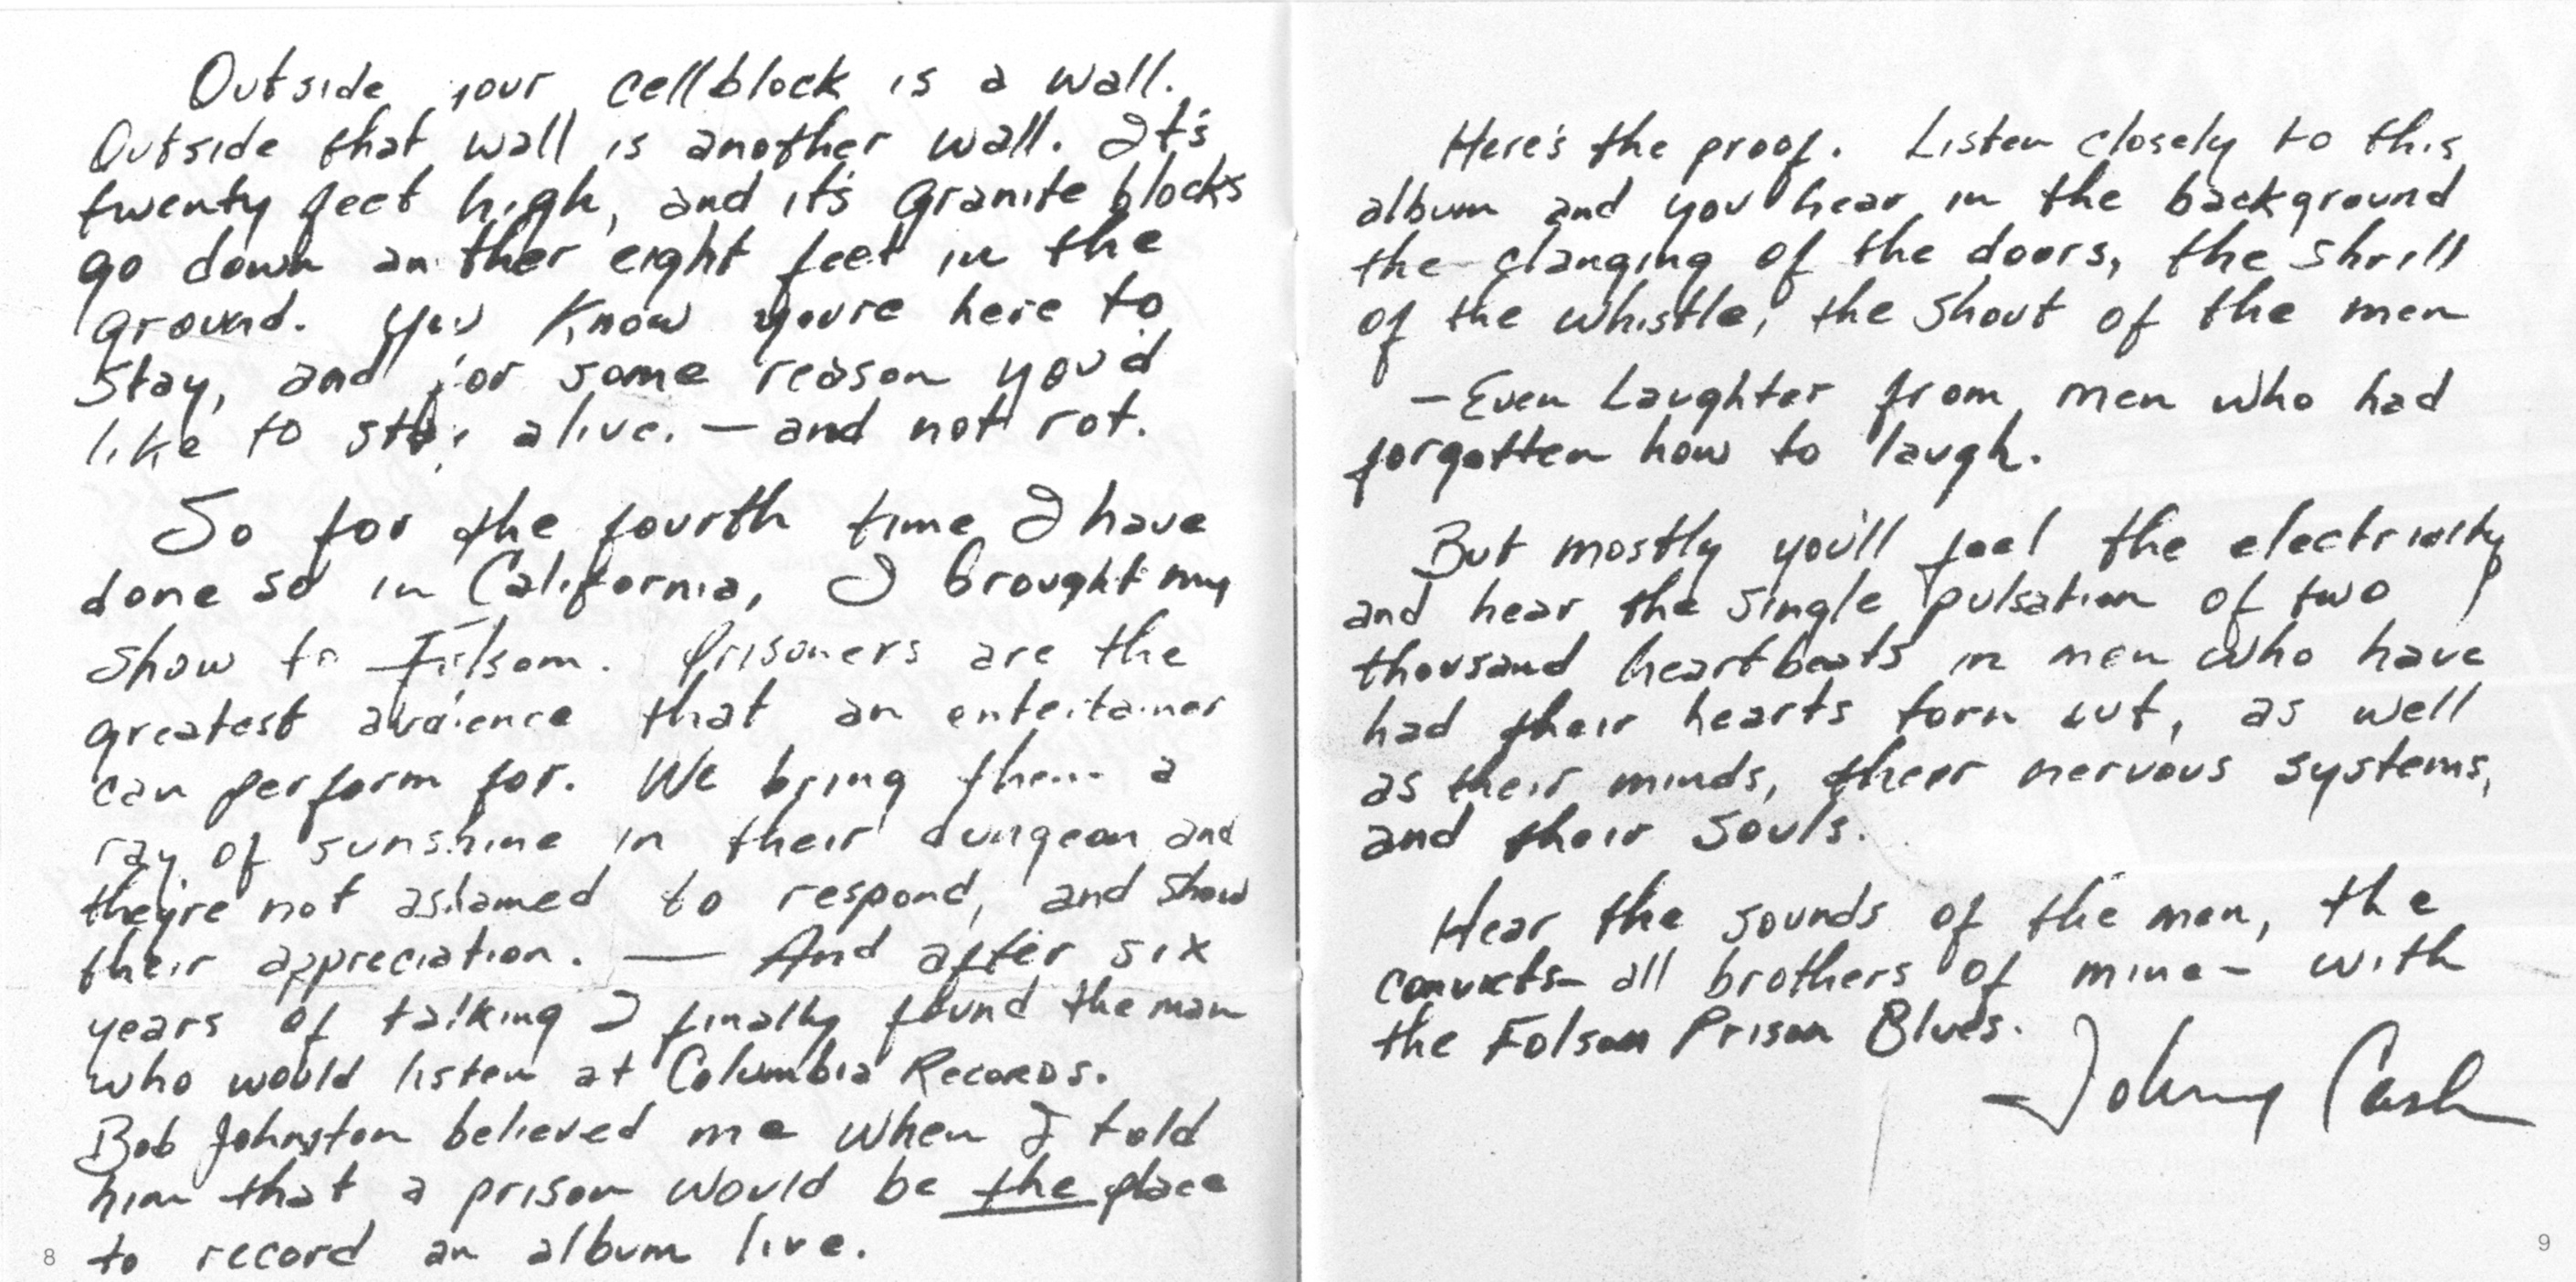 Outside your cellblock is a wall.
Outside that wall is another wall. It's
twenty feet high, and it's granite blocks
go down another eight feet in the
ground. You know you're here to
stay, and for some reason you'd
like to stay alive. — and not rot.
So for the fourth time I have
done so in California, I brought my
show to Folsom. Prisoners are the
greatest audience that an entertainer
can perform for. We bring them a
ray of sunshine in their dungeon and
they're not ashamed to respond, and show
their appreciation. — And after six
years of talking I finally found the man
who would listen at Columbia Records.
Bob Johnston believed me when I told
him that a prison would be the place
to record an album live.
8
Here's the proof. Listen closely to this
album and you hear in the background
the clanging of the doors, the shrill
of the whistle, the shout of the men
— Even laughter from men who had
forgotten how to laugh.
But mostly you'll feel the electricity
and hear the single pulsation of two
thousand heartbeats in men who have
had their hearts torn out, as well
as their minds, their nervous systems,
and their souls.
Hear the sounds of the men, the
convicts — all brothers of mine — with
the Folsom Prison Blues.
Johnny Cash
9